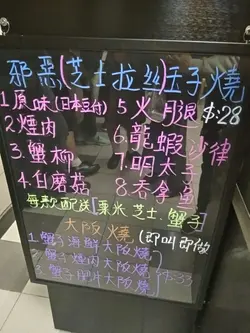 邪惡(芝士拉絲)玉子燒
1原味(日本豆付) 5火月退 $:28
2煙肉 6.龍蝦沙律
3.蟹柳 7.明太子
4.白磨菇 8吞拿魚
每款配送「粟米芝士.蟹子」
大阪燒 (即叫即做)
1.蟹子海鮮大阪燒
2.蟹子燒肉大阪燒 $:33
3.蟹子門片大阪燒